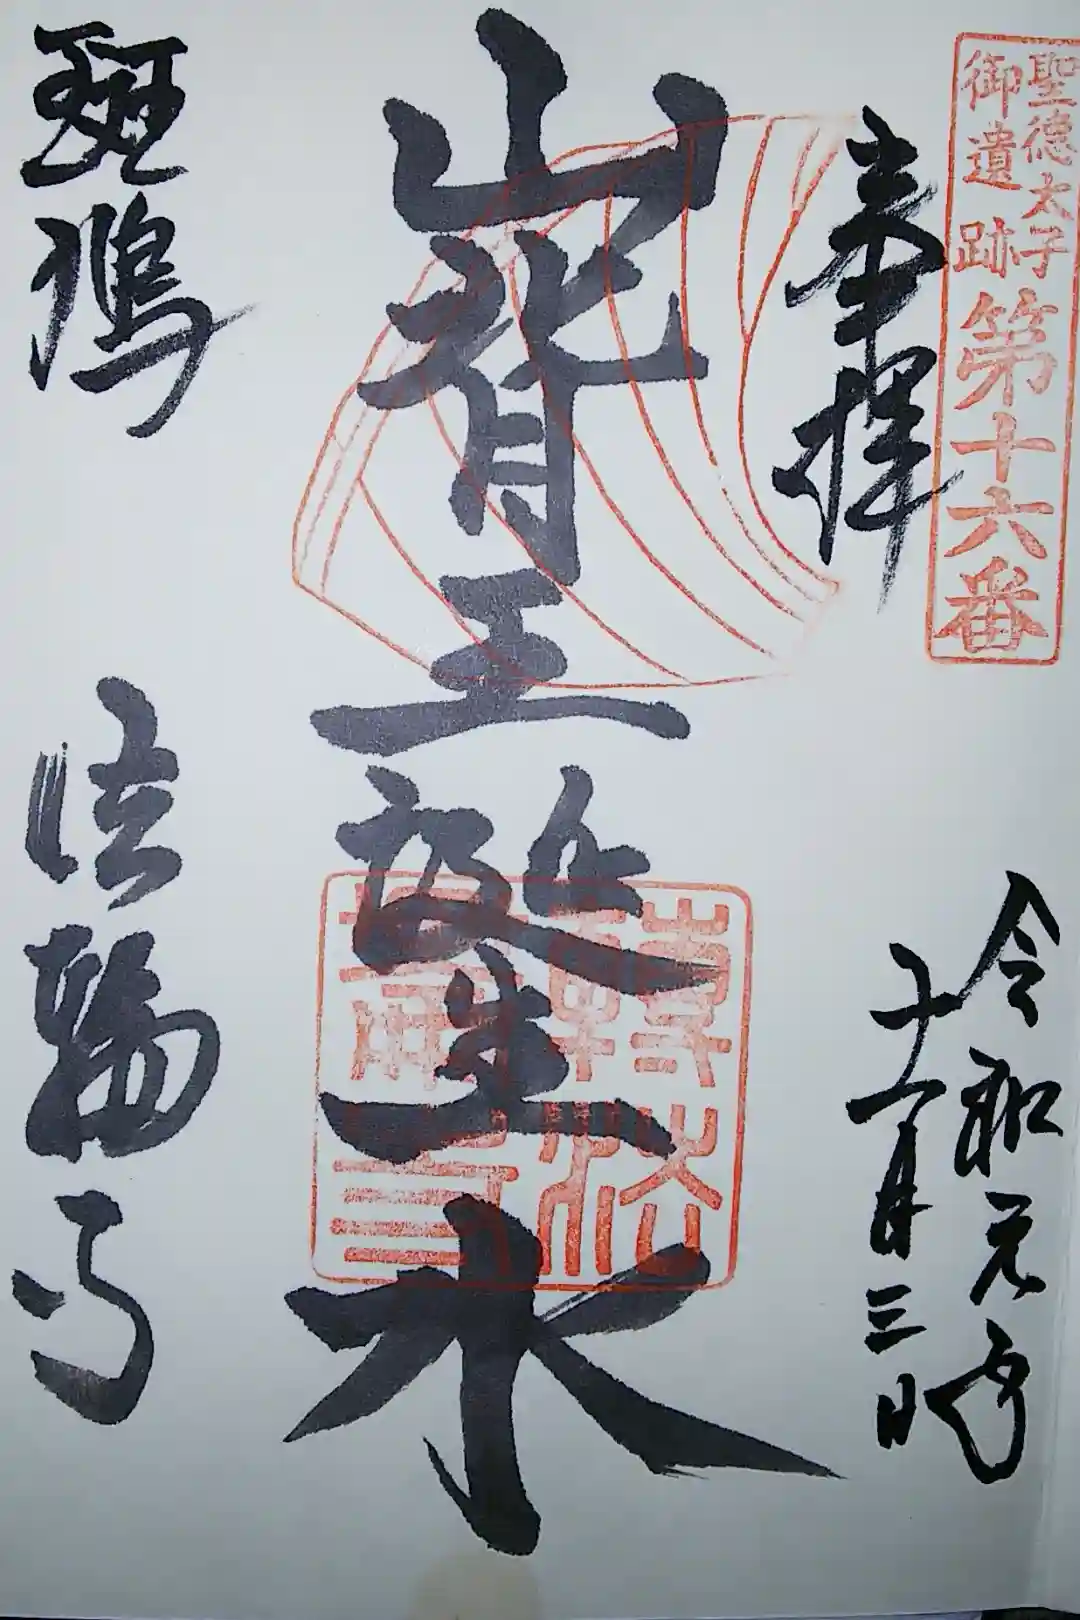 聖徳太子
御遺跡第十六番
奉拝
令和元年
十一月三日
山背王誕生水
斑鳩 法輪寺